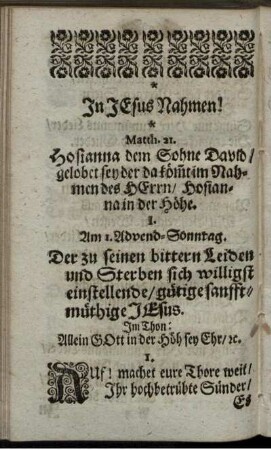 *
In JEsus Nahmen!
*
Matth. 21.
Hosianna dem Sohne David/
gelobet sey der da kömt im Nah-
men des HErrn/ Hosian-
na in der Höhe.
I.
Am 1. Advend-Sonntag.
Der zu seinen bittern Leiden
und Sterben sich willigst
einstellende/ gütige sanfft-
müthige JEsus.
Im Thon:
Allein GOtt in der Höh sey Ehr/ ꝛc.
1.
AUf! machet eure Thore weit/
Ihr hochbetrübte Sünder/
Es